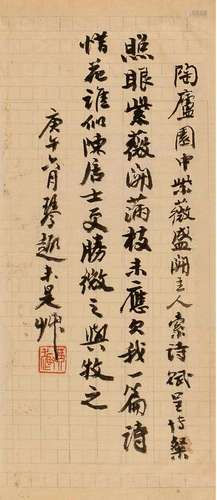 陶廬園中紫薇盛開主人索詩賦呈詩粲
照眼紫薇開滿枝未應欠我一篇詩
惜花誰似陳居士更勝微之與牧之
庚午六月琴趣未是艸